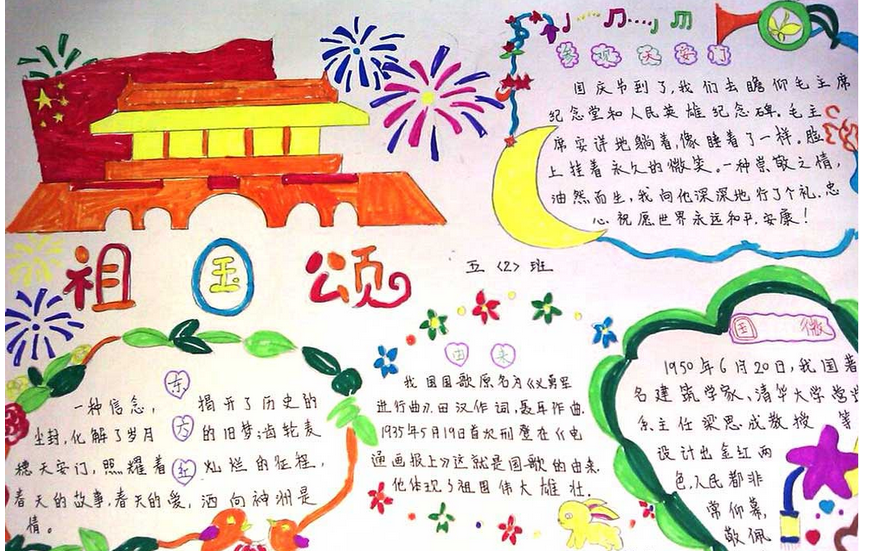 参观天安门
国庆节到了,我们去瞻仰毛主席
纪念堂和人民英雄纪念碑。毛主
席安详地躺着,像睡着了一样。脸
上挂着永久的微笑。一种崇敬之情,
油然而生,我向他深深地行了个礼。忠
心祝愿世界永远和平,安康!
祖国颂
五〈2〉班
东方红
一种信念, 揭开了历史的
尘封,化解了岁月的旧梦;齿轮表
穗天安门,照耀着灿烂的征程,
春天的故事,春天的爱,洒向神洲是
情。
由来
我国国歌原名为《义勇军
进行曲》。田汉作词,聂耳作曲.
1935年5月19日首次刑登在《电
通画报上》这就是国歌的由来.
他体现了祖国伟大雄壮.
国徽
1950年6月20日,我国著
名建筑学家、清华大学营
系主任梁思成教授等
设计出金红两
色,人民都非
常仰幕,
敬佩